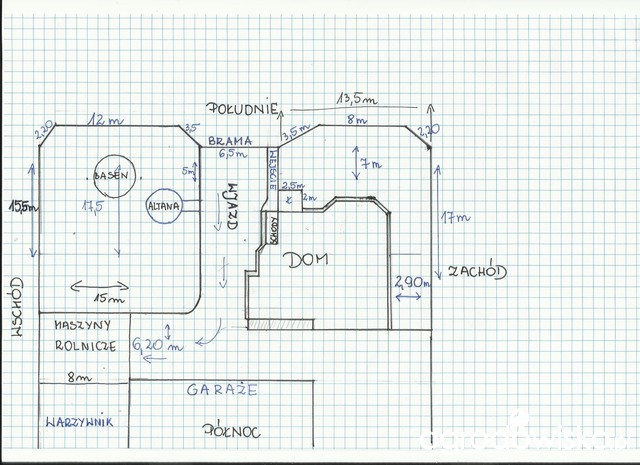 POŁUDNIE
13,5m
2,20
12 m
3,5
BRAMA
6,5m
3,5m
8m
2,20
BASEN
5m
WEJŚCIE
7m
15,5m
17,5
ALTANA
WJAZD
2,5m
2m
Ł
17m
SCHODY
DOM
ZACHÓD
2,90m
WSCHÓD
15m
MASZYNY
ROLNICZE
6,20 m
8m
GARAŻE
WARZYWNIK
PÓŁNOC